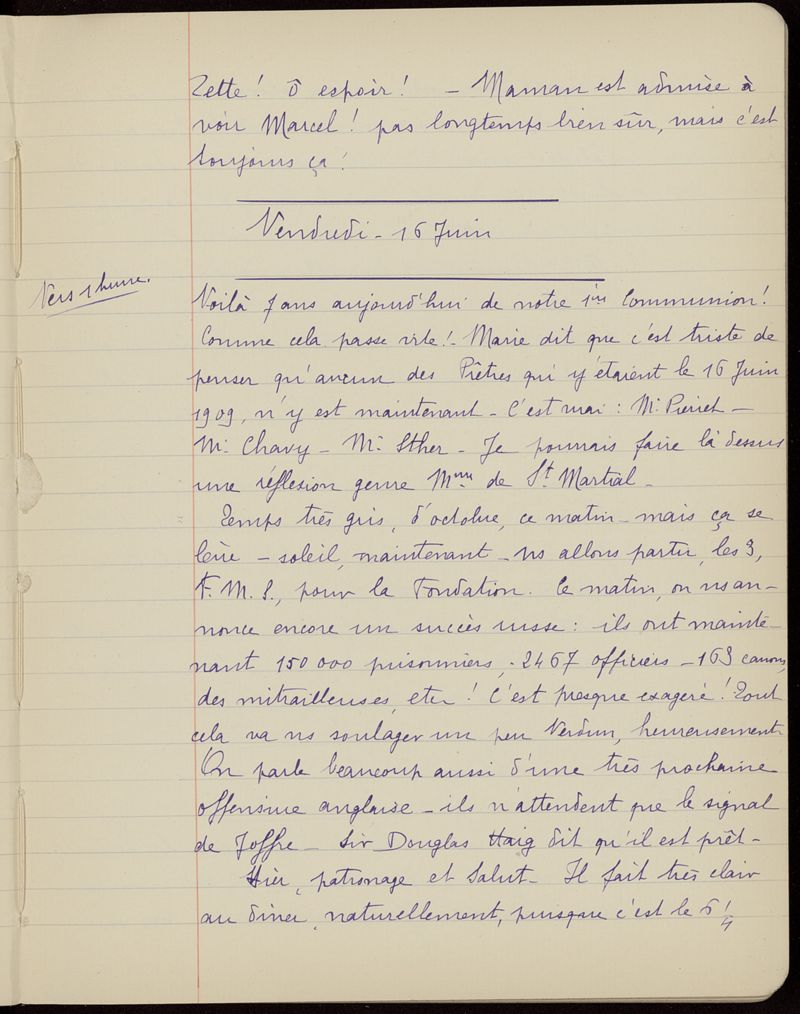 Zette ! ô espoir ! – Maman est admise à
voir Marcel ! pas longtemps bien sûr, mais c'est
toujours ça !
Vendredi – 16 Juin
Vers 1 heure.
Voilà 7 ans aujourd'hui de notre 1ère Communion !
Comme cela passe vite ! – Marie dit que c'est triste de
penser qu'aucun des Prêtres qui y étaient le 16 Juin
1909, n'y est maintenant – C'est vrai : Mr Pierret –
Mr Chavy – Mr Sther – Je pourrais faire là dessus
une réflexion genre Mme de St Martial –
Temps très gris, d'octobre, ce matin – mais ça se
lève – soleil, maintenant – ns allons partir, les 3,
F. M. S., pour la Fondation. Ce matin, on ns an-
nonce encore un succès russe : ils ont mainte-
nant 150 000 prisonniers, . 2467 officiers – 163 canons,
des mitrailleuses, etc ! C'est presque exagéré ! Tout
cela va ns soulager un peu Verdun, heureusement
On parle beaucoup aussi d'une très prochaine
offensive anglaise – ils n'attendent que le signal
de Joffre – Sir Douglas Haig dit qu'il est prêt –
Hier, patronage et Salut – Il fait très clair
au dîner, naturellement, puisque c'est le